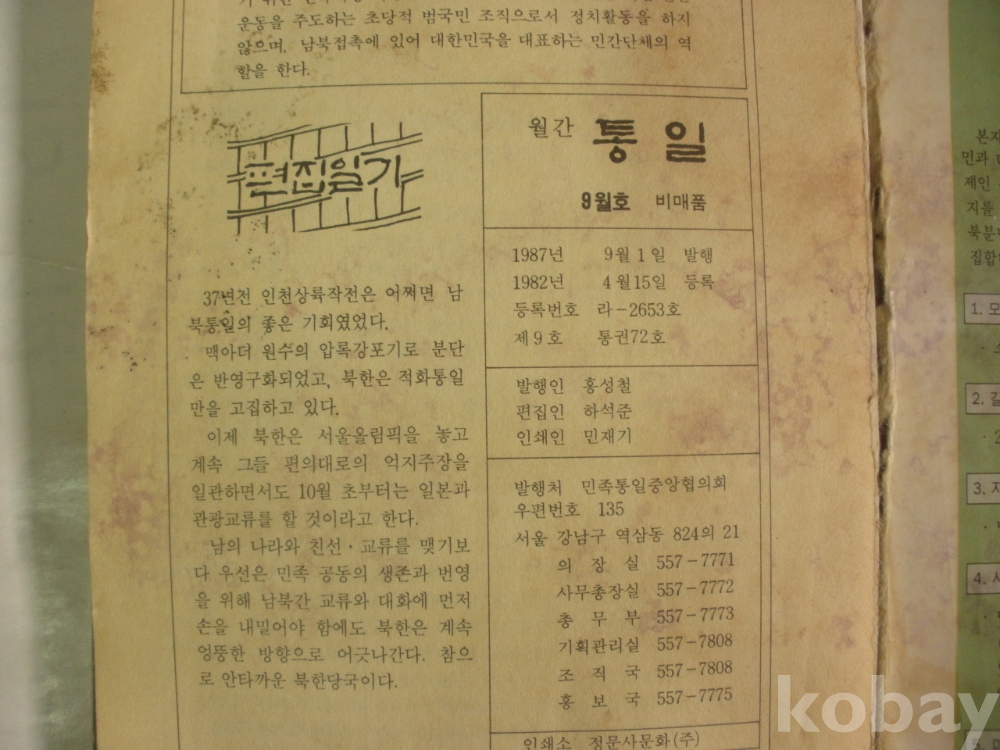 운동을 주도하는 초당적 범국민 조직으로서 정치활동을 하지
않으며, 남북접촉에 있어 대한민국을 대표하는 민간단체의 역
할을 한다.
편집일기
37년전 인천상륙작전은 어쩌면 남
북통일의 좋은 기회였었다.
맥아더 원수의 압록강포기로 분단
은 반영구화되었고, 북한은 적화통일
만을 고집하고 있다.
이제 북한은 서울올림픽을 놓고
계속 그들 편의대로의 억지주장을
일관하면서도 10월 초부터는 일본과
관광교류를 할 것이라고 한다.
남의 나라와 친선·교류를 맺기보
다 우선은 민족 공동의 생존과 번영
을 위해 남북간 교류와 대화에 먼저
손을 내밀어야 함에도 북한은 계속
엉뚱한 방향으로 어긋나간다. 참으
로 안타까운 북한당국이다.
월간 통일
9월호 비매품
1987년 9월 1일 발행
1982년 4월15일 등록
등록번호 라-2653호
제9호 통권72호
발행인 홍성철
편집인 하석준
인쇄인 민재기
발행처 민족통일중앙협의회
우편번호 135
서울 강남구 역삼동 824의 21
의장실 557-7771
사무총장실 557-7772
총무부 557-7773
기획관리실 557-7808
조직국 557-7808
홍보국 557-7775
인쇄소 정문사문화(주)
본지
민과
제인
지를
북분
집합
1. 모
2. 길
3. 지
4. 사
kobay